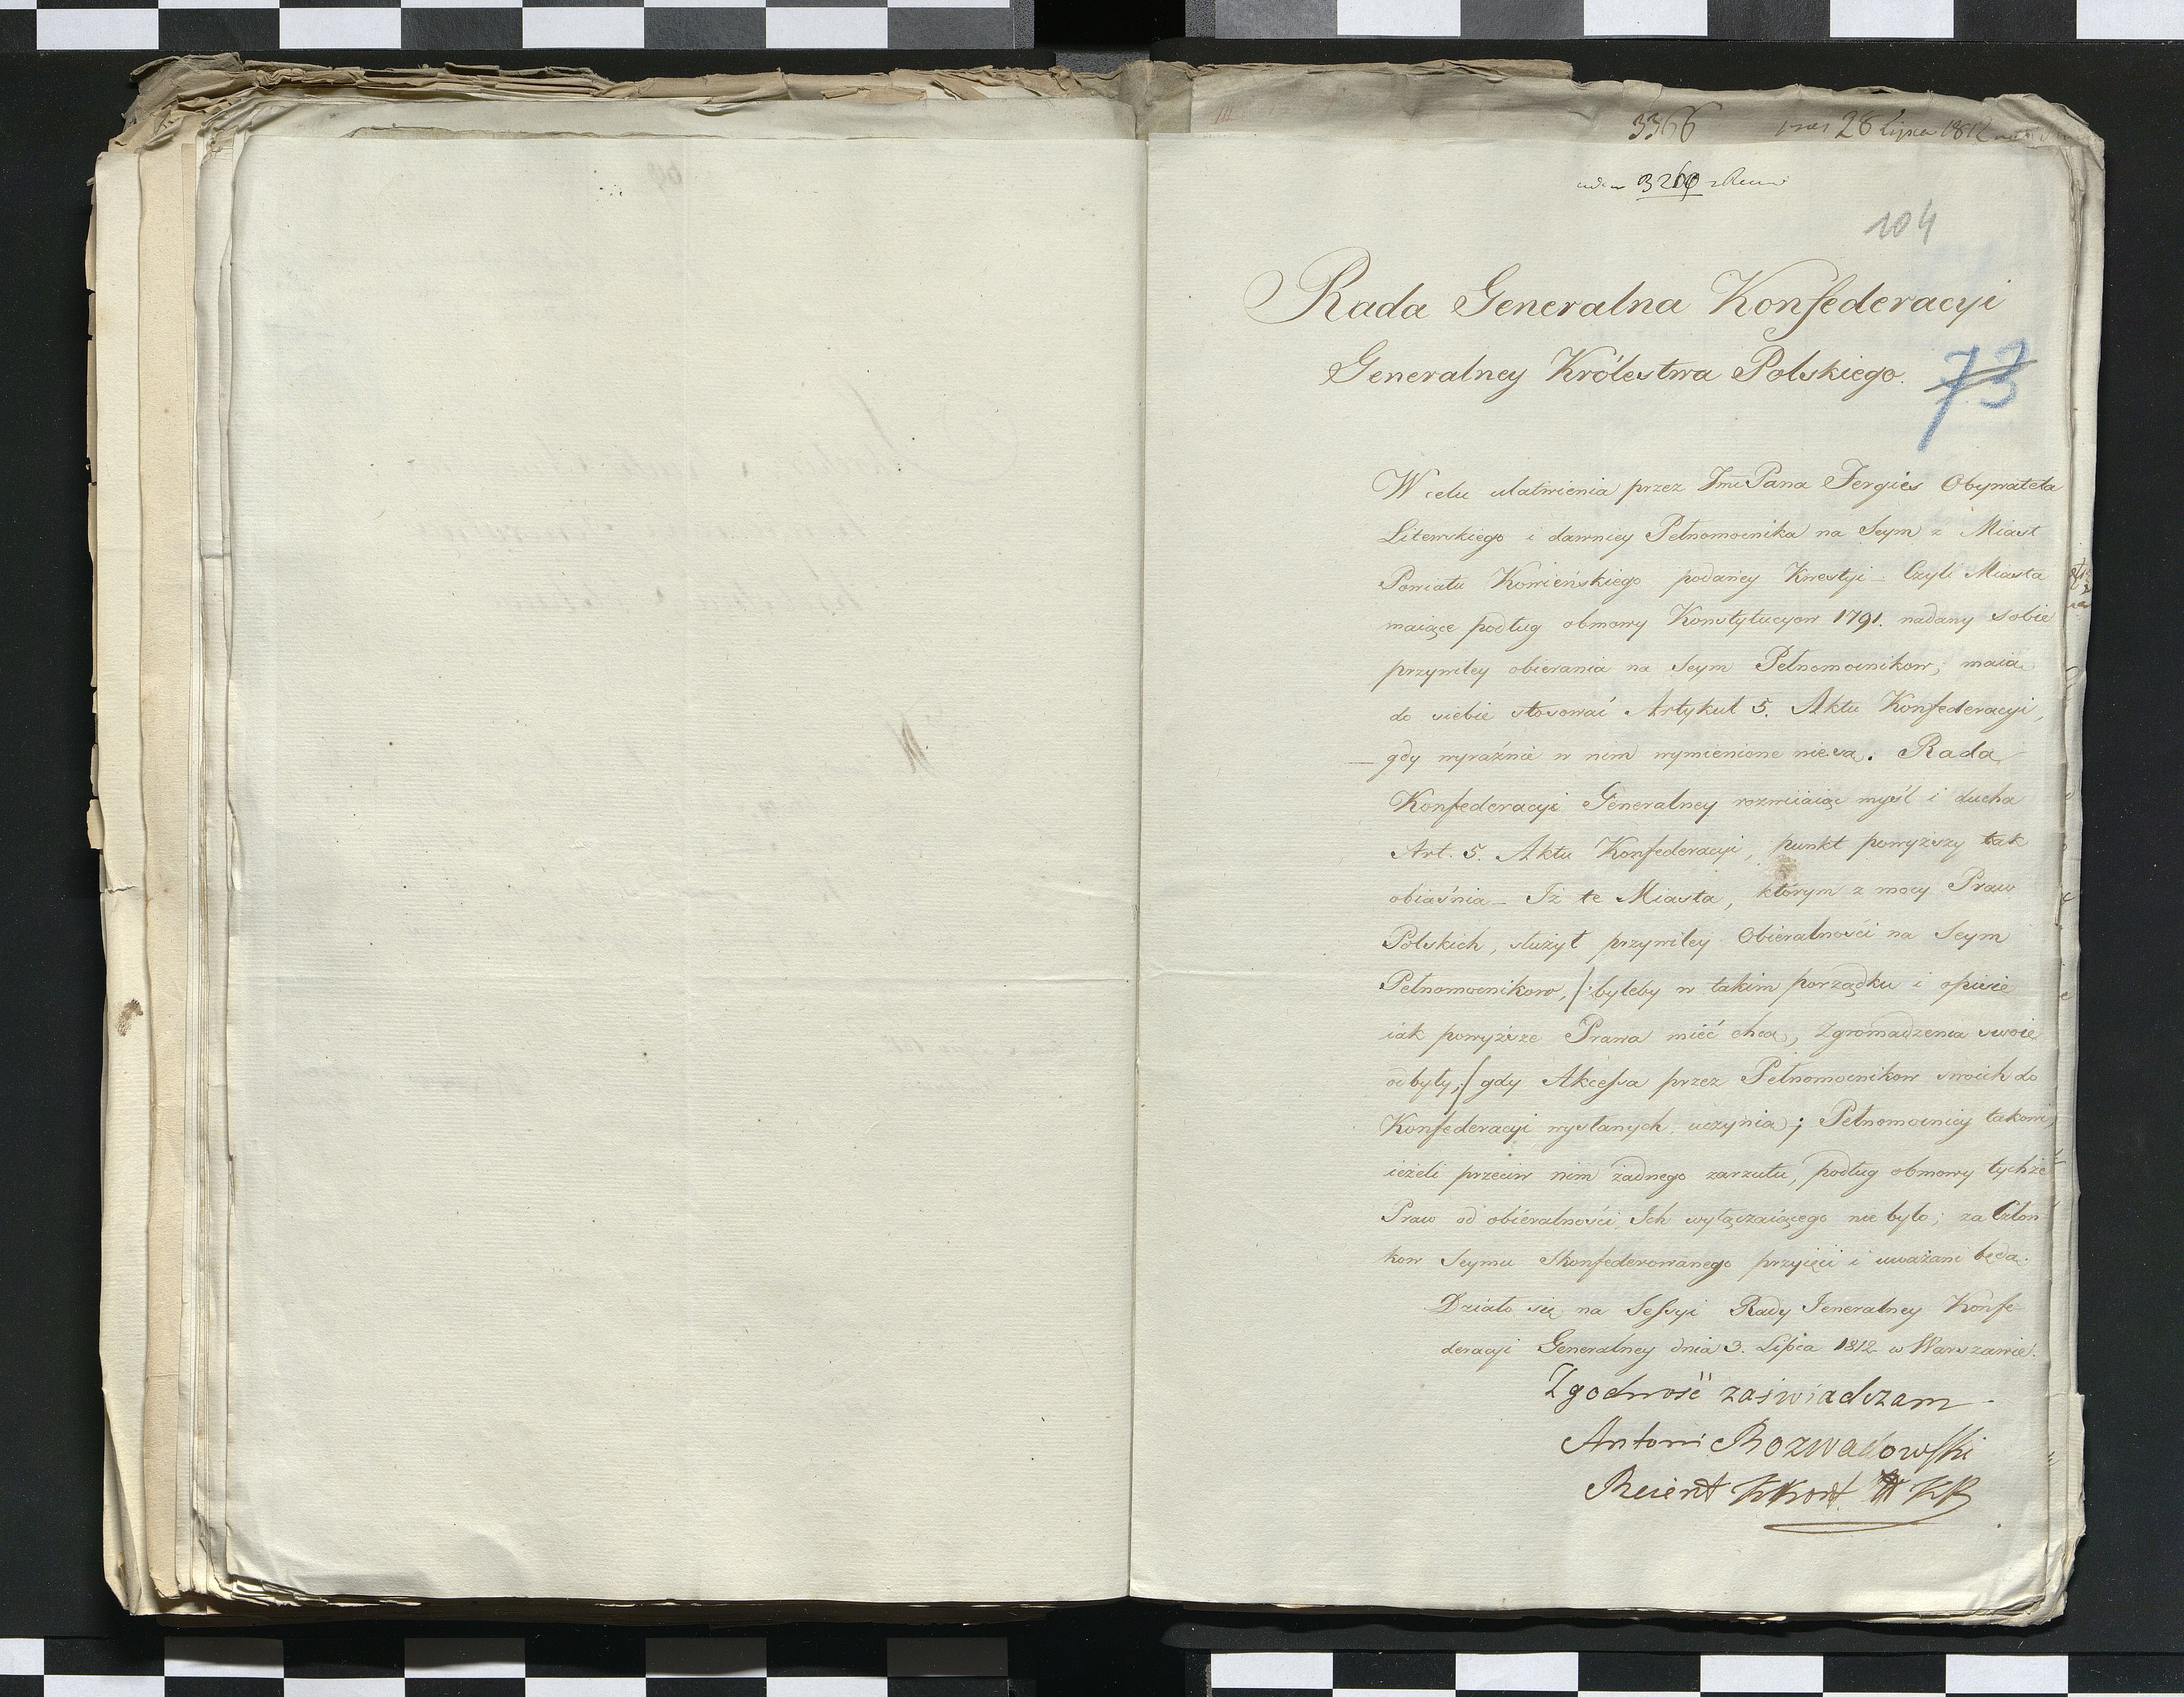 3366 28 Lipca 1812
3269
104
Rada Generalna Konfederacyi
Generalney Królestwa Polskiego.
73
W celu ułatwienia przez Jmć Pana Fergies Obywatela
Litewskiego i dawniey Pełnomocnika na Seym z Miast
Powiatu Kowieńskiego podaney Kwestyi – Czyli Miasta
maiące podług obmowy Konstytucyow 1791. nadany sobie
przywiley obierania na Seym Pełnomocnikow, maią
do siebie stosować Artykuł 5. Aktu Konfederacyi,
gdy wyraźnie w nim wymienione nie są. Rada
Konfederacyi Generalney rozwiiaiąc myśl i ducha
Art. 5. Aktu Konfederacyi, punkt powyższy tak
obiaśnia – Iż te Miasta, którym z mocy Praw
Polskich, służył przywiley Obieralności na Seym
Pełnomocnikow, /: byleby w takim porządku i opisie
iak powyższe Prawa mieć chcą, Zgromadzenia swoie
odbyły,/ gdy Akcessa przez Pełnomocnikow swoich do
Konfederacyi wysłanych uczynią; Pełnomocnicy takowi,
ieżeli przeciw nim żadnego zarzutu, podług obmowy tychże
Praw od obieralności Ich wyłączaiącego nie było; za Człon
kow Seymu Skonfederowanego przyięci i uważani będą.
Działo się na Sessyi Rady Jeneralney Konfe-
deracyi Generalney dnia 3. Lipca 1812 w Warszawie.
Zgodność zaświadczam –
Antoni Rozwadowski
Reient